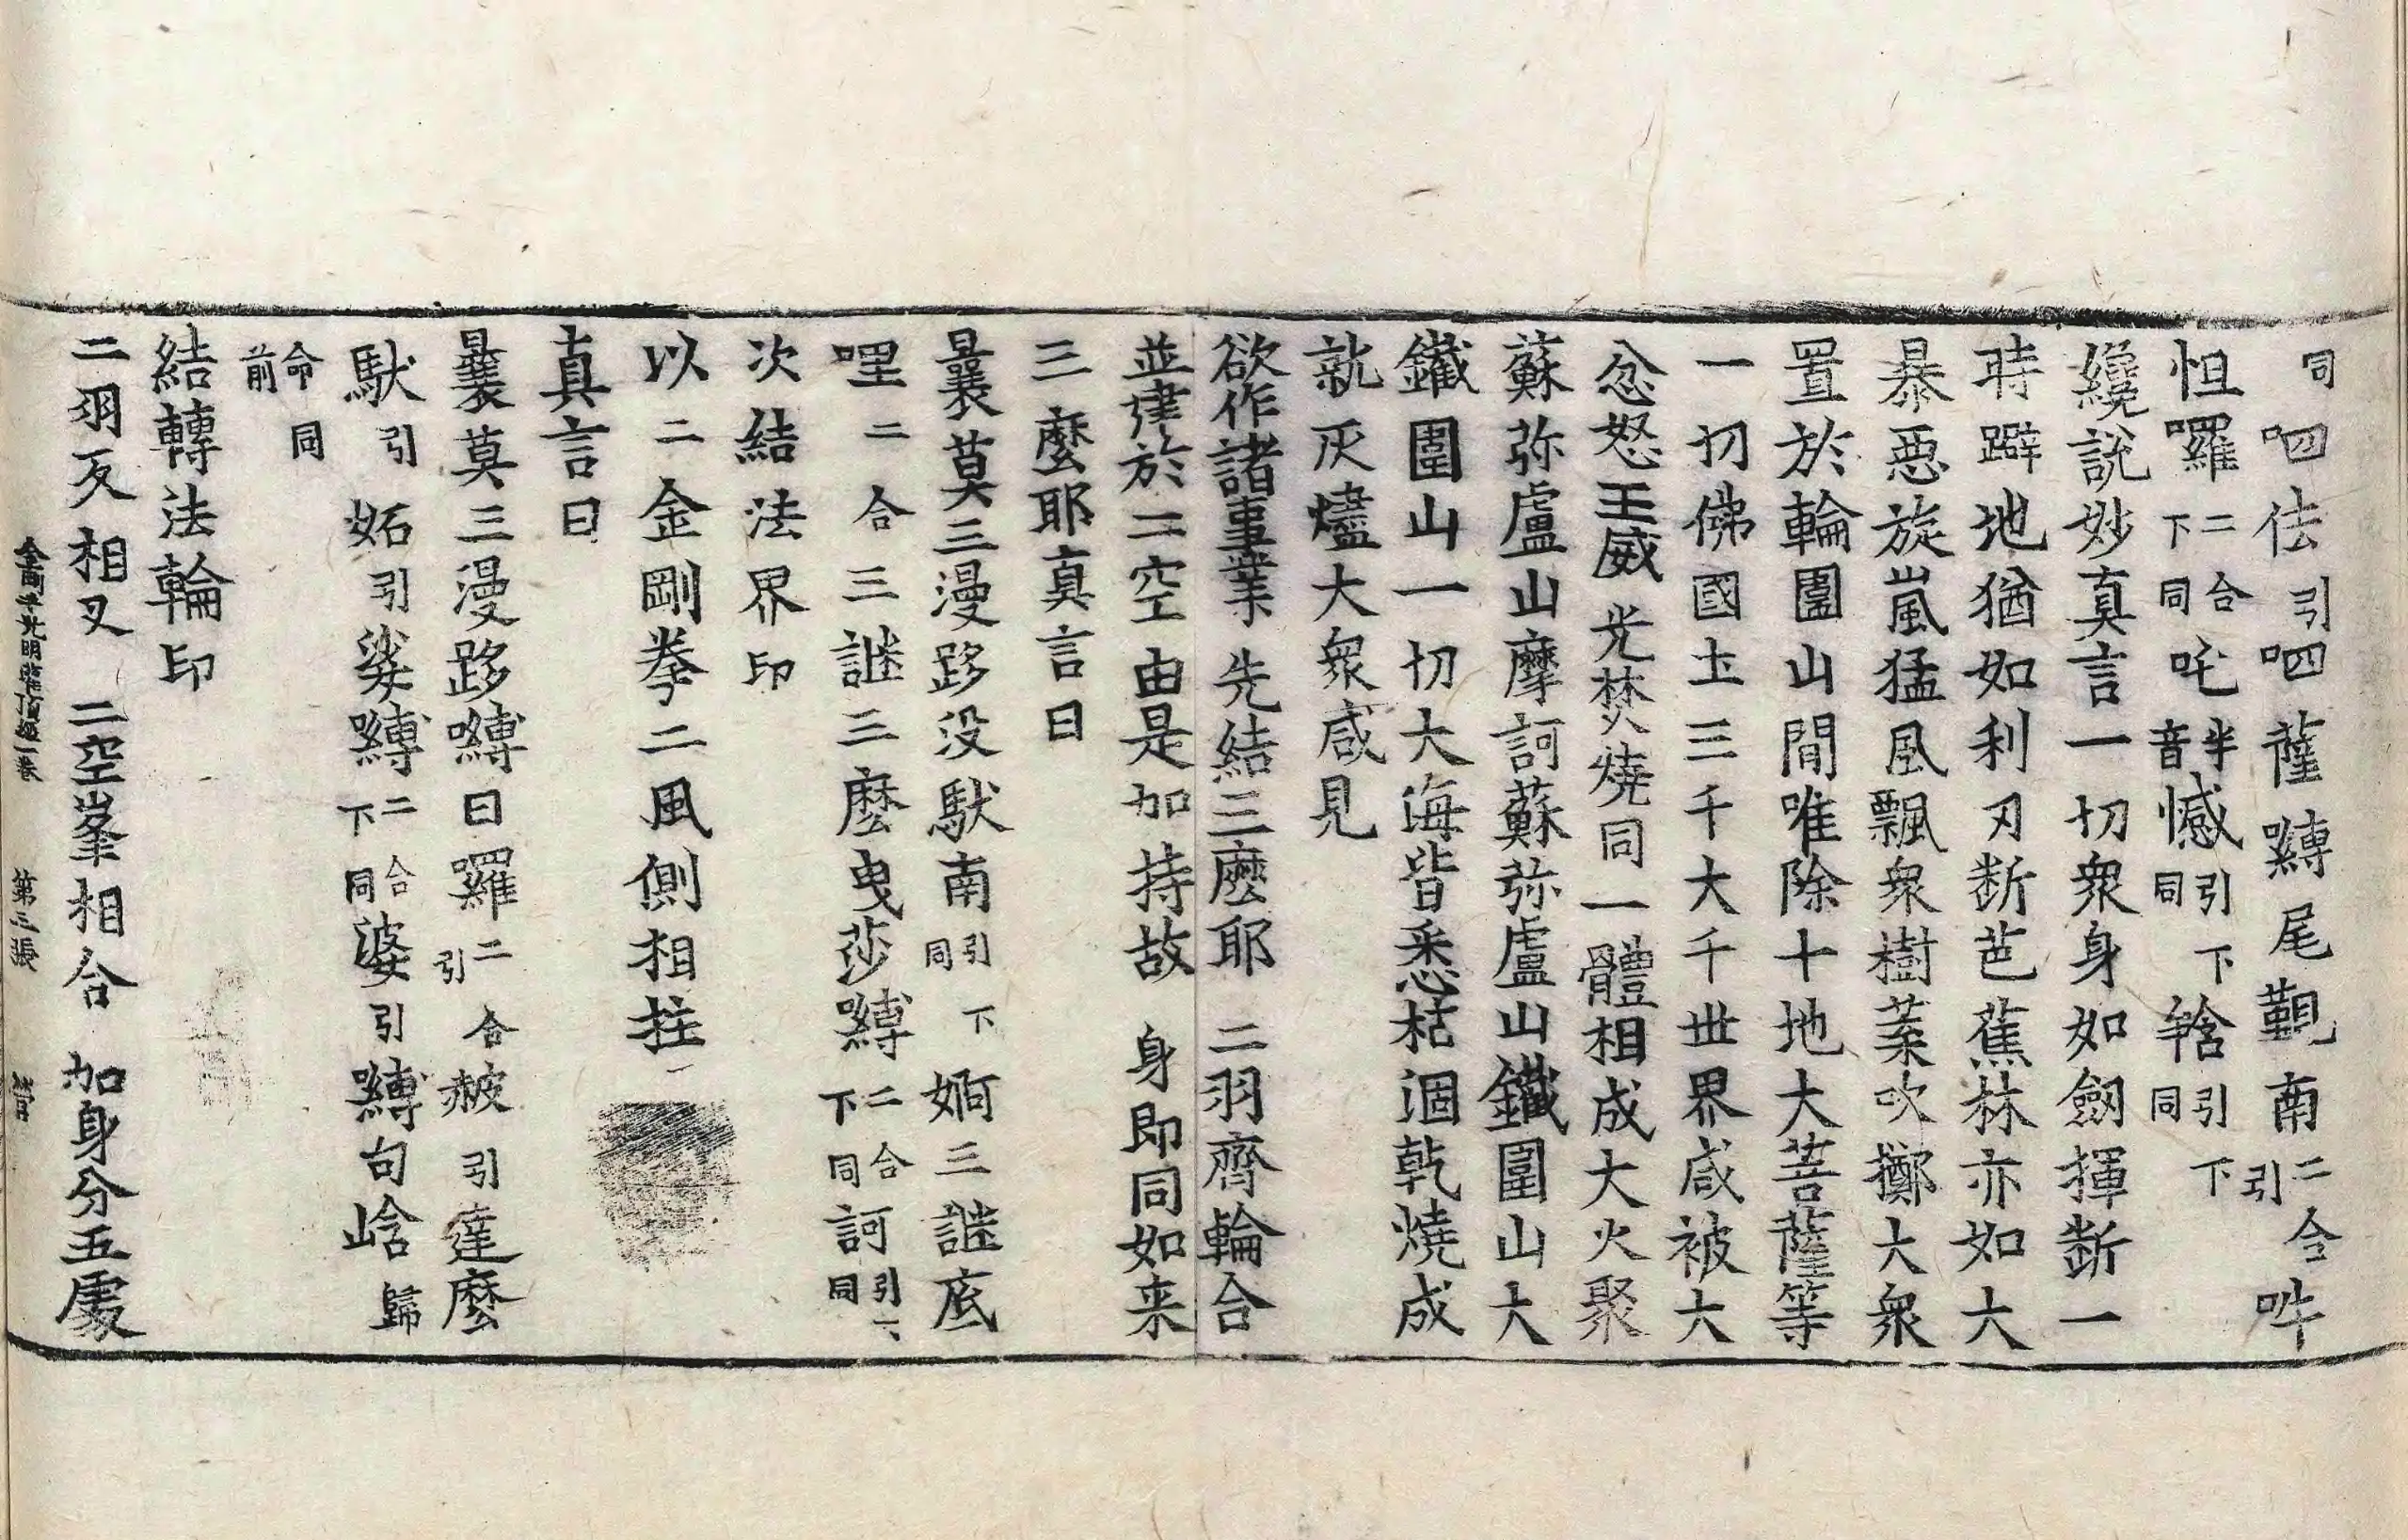 同呬佉引呬薩嚩尾覲南二合引吽
怛囉二合下同吒半音憾引下同𤚥引下同
纔說妙真言一切衆身如劔揮斷一
時躃地猶如利刃断芭蕉林亦如大
暴惡旋嵐猛風飄衆樹葉吹擲大衆
置於輪圍山間唯除十地大菩薩等
一切佛國土三千大千世界咸被大
忿怒王威光焚燒同一體相成大火聚
蘇弥盧山摩訶蘇弥盧山鐵圍山大
鐵圍山一切大海皆悉枯涸乹燒成
就灰燼大衆咸見
欲作諸事業先結三麽耶二羽齊輪合
並建於二空由是加持故身即同如来
三麽耶真言曰
曩莫三漫跢没馱南引下同婀三謎底
哩二合三謎三麽曳莎嚩二合下同訶引下同
次結法界印
以二金剛拳二風側相拄
真言曰
曩莫三漫跢嚩曰羅二合引赧引達麽
馱引妬引娑嚩二合下同婆引嚩句㗶歸
命同前
結轉法輪印
二羽反相叉二空峯相合加身分五處
金剛手光明灌頂經一卷 第三張